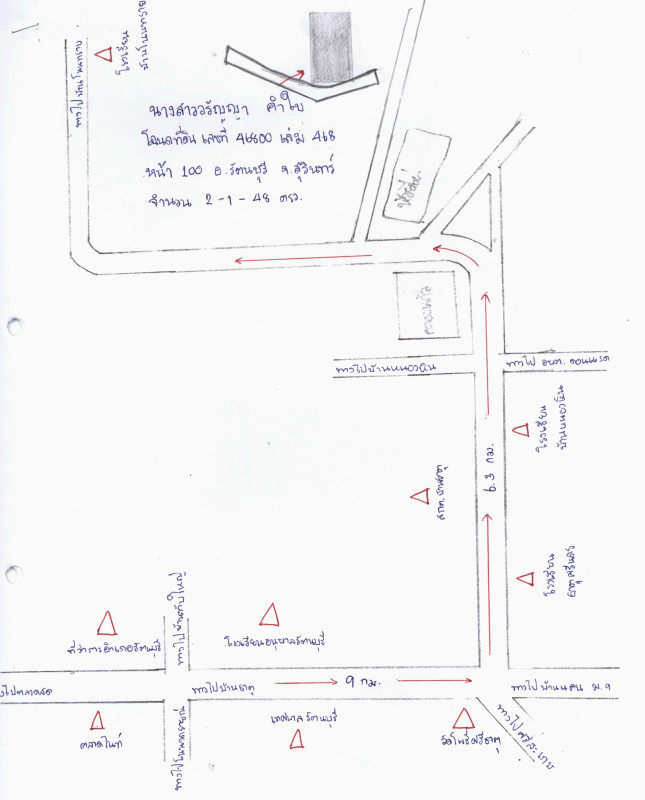 โรงเรียน
บ้านโนนทราย
ทางไปบ้านโนนทราย
นางสาววรัญญา คำใบ
โฉนดที่ดิน เลขที่ 46800 เล่ม 468
หน้า 100 อ.รัตนบุรี จ.สุรินทร์
จำนวน 2-1-48 ตรว.
ทางไปบ้านหนองหิน
ทางไป อบต. ดอนแรด
โรงเรียน
บ้านหนองหิน
6.3 กม.
สถต.บ้านธาตุ
โรงเรียน
ธาตุศรีนคร
ที่ว่าการอำเภอรัตนบุรี
โรงเรียนอนุบาลรัตนบุรี
ทางไปบ้านธาตุ
9 กม.
ตลาดไนท์
เทศบาลรัตนบุรี
วัดโพธิ์ศรีธาตุ
ทางไปศรีสะเกษ